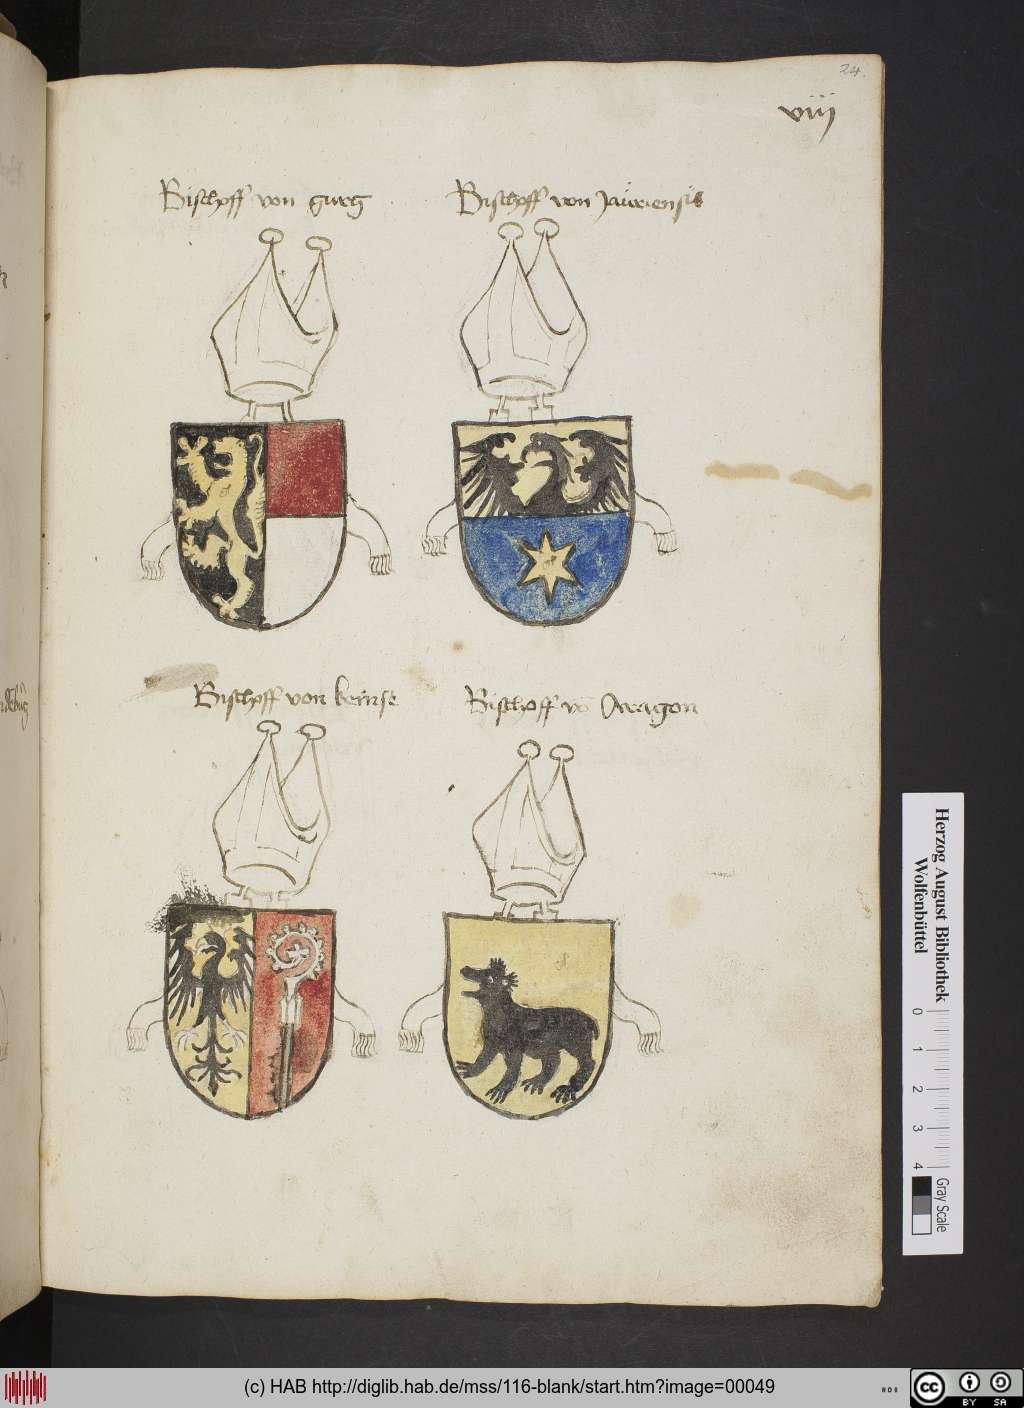 24.
viij
Bischoff von gurg
Bischoff von Jauriensis
Bischoff von kemse
Bischoff vō Arragon
Herzog August Bibliothek
Wolfenbüttel
0 1 2 3 4
Gray Scale
(c) HAB http://diglib.hab.de/mss/116-blank/start.htm?image=00049
cc BY SA